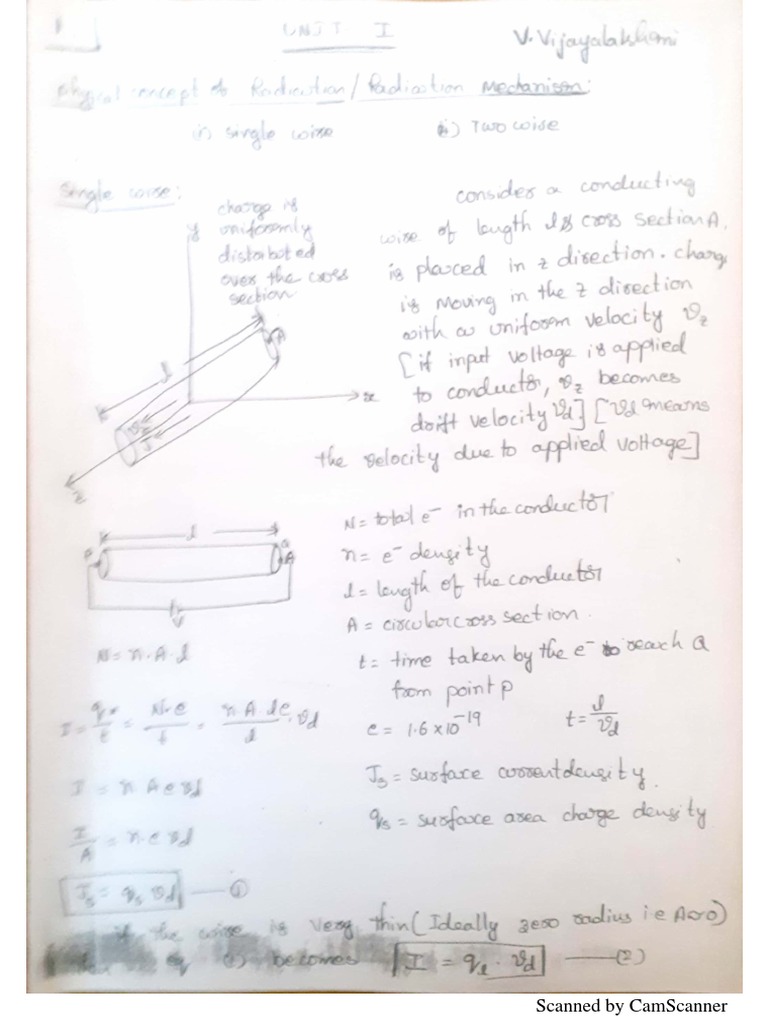 UNIT I
V. Vijayalakshmi
Physical concept of Radiation / Radiation Mechanism:
(i) Single wire (ii) Two wire
Single wire:
charge is
uniformly
distorbuted
over the cross
section
y
A
l
x
J
z
consider a conducting
wire of length l & cross section A,
is placed in z direction. charge
is moving in the z direction
with a uniform velocity vz
[if input voltage is applied
to conductor, vz becomes
drift velocity vd] [vd means
the velocity due to applied voltage]
l
P Q
A
V
N = total e⁻ in the conductor
n = e⁻ density
l = length of the conductor
A = circular cross section.
N = n · A · l
t = time taken by the e⁻ to reach Q
from point P
I = q/t = N·e/t = n A l e/l · vd
e = 1.6 × 10⁻¹⁹ t = l/vd
I = n A e vd
Js = surface current density
I/A = n · e vd
qs = surface area charge density
Js = qs vd — (1)
if the wire is very thin (Ideally zero radius i.e A=0)
eq (1) becomes I = ql · vd — (2)
Scanned by CamScanner